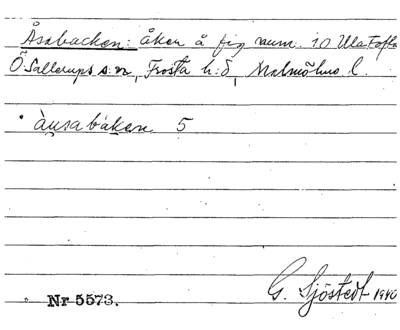 Åsabacken: åker å fig. num. 10 Ulatofta
Ö Sallerups sn, Frosta h:d, Malmöhus l.
àusabakan 5
G. Sjöstedt 1940
Nr 5573.